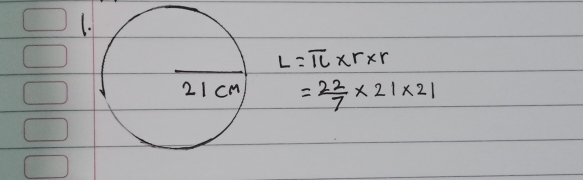 1.
21 CM
L = π × r × r
= 22/7 × 21 × 21